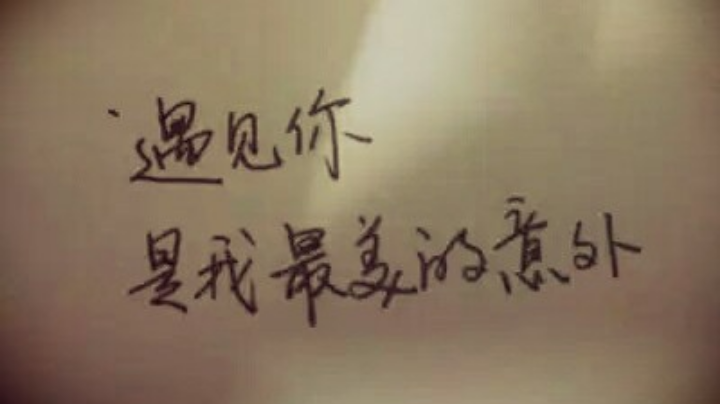 遇见你
是我最美的意外